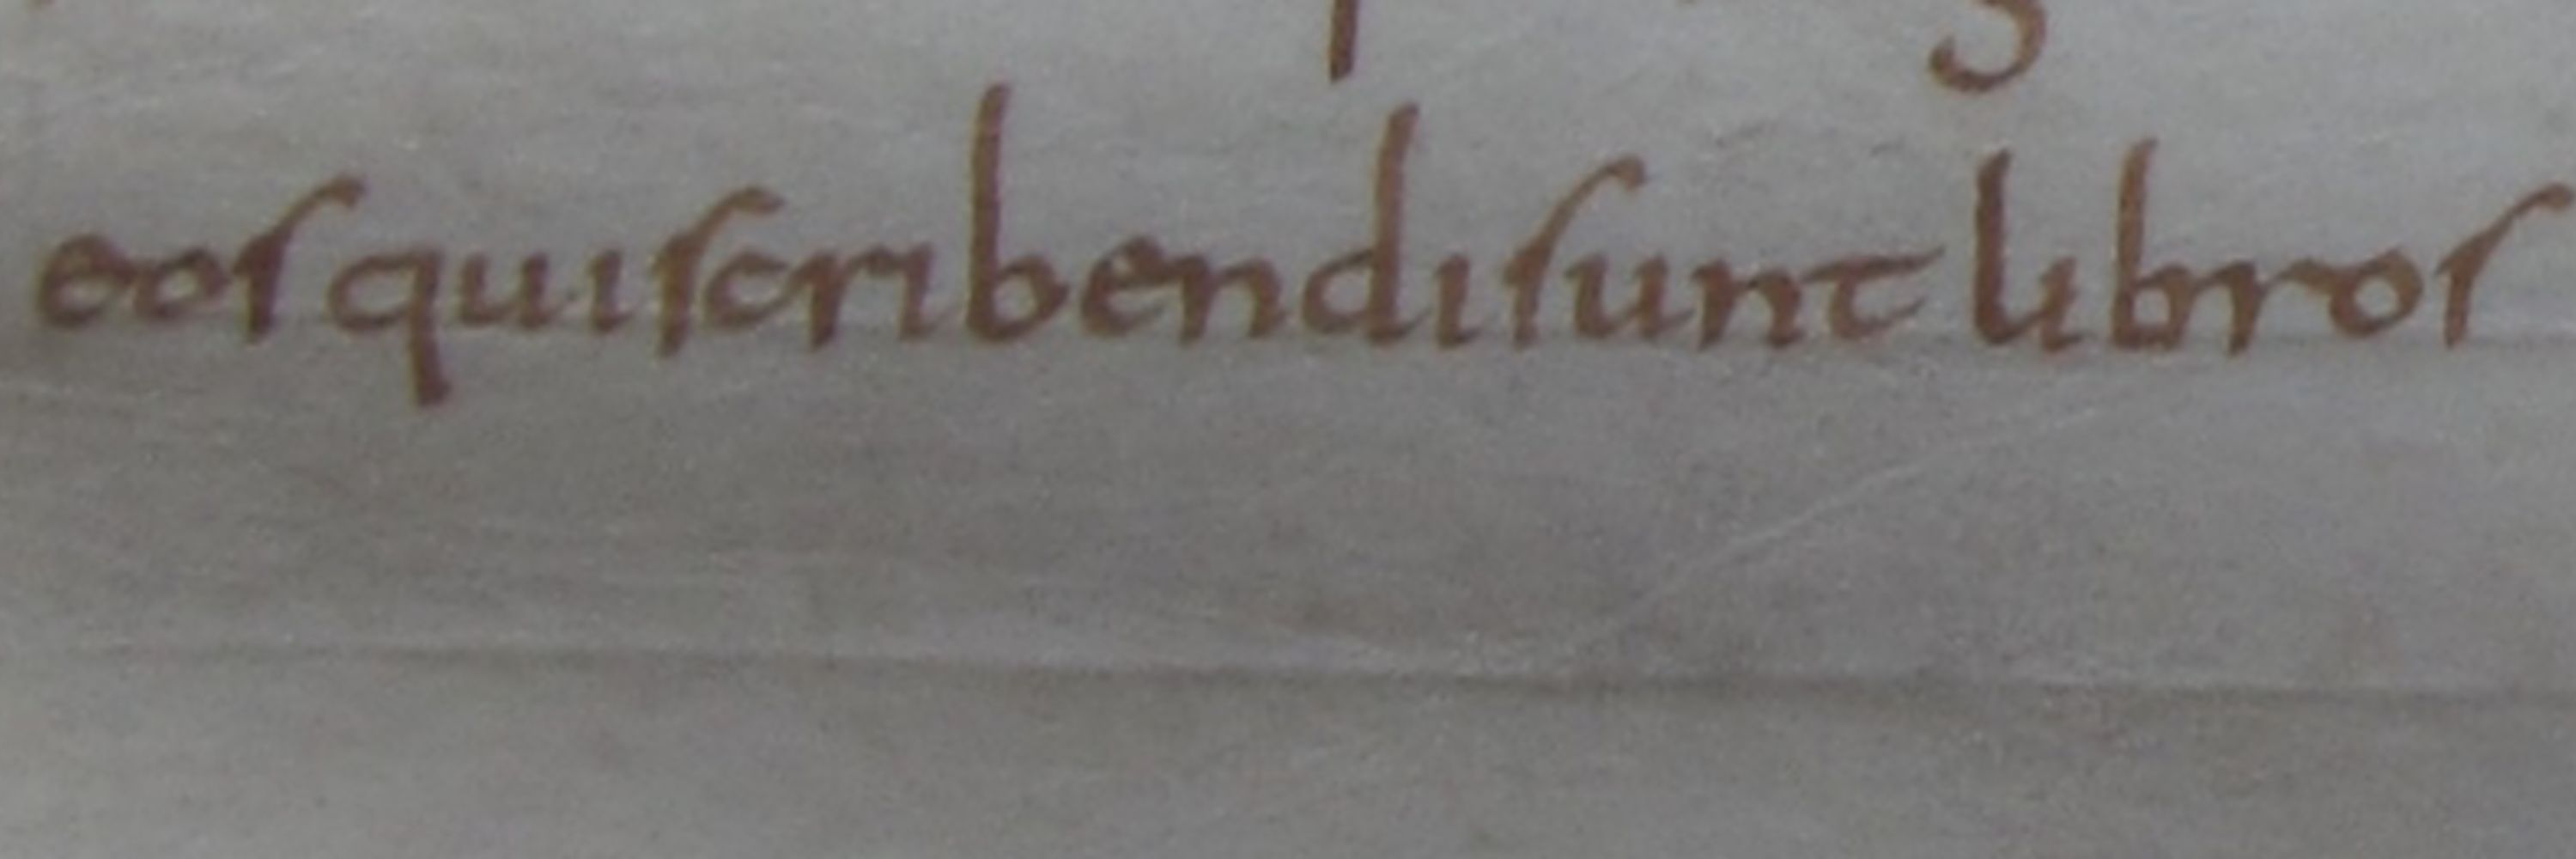 eos qui scribendi sunt libros